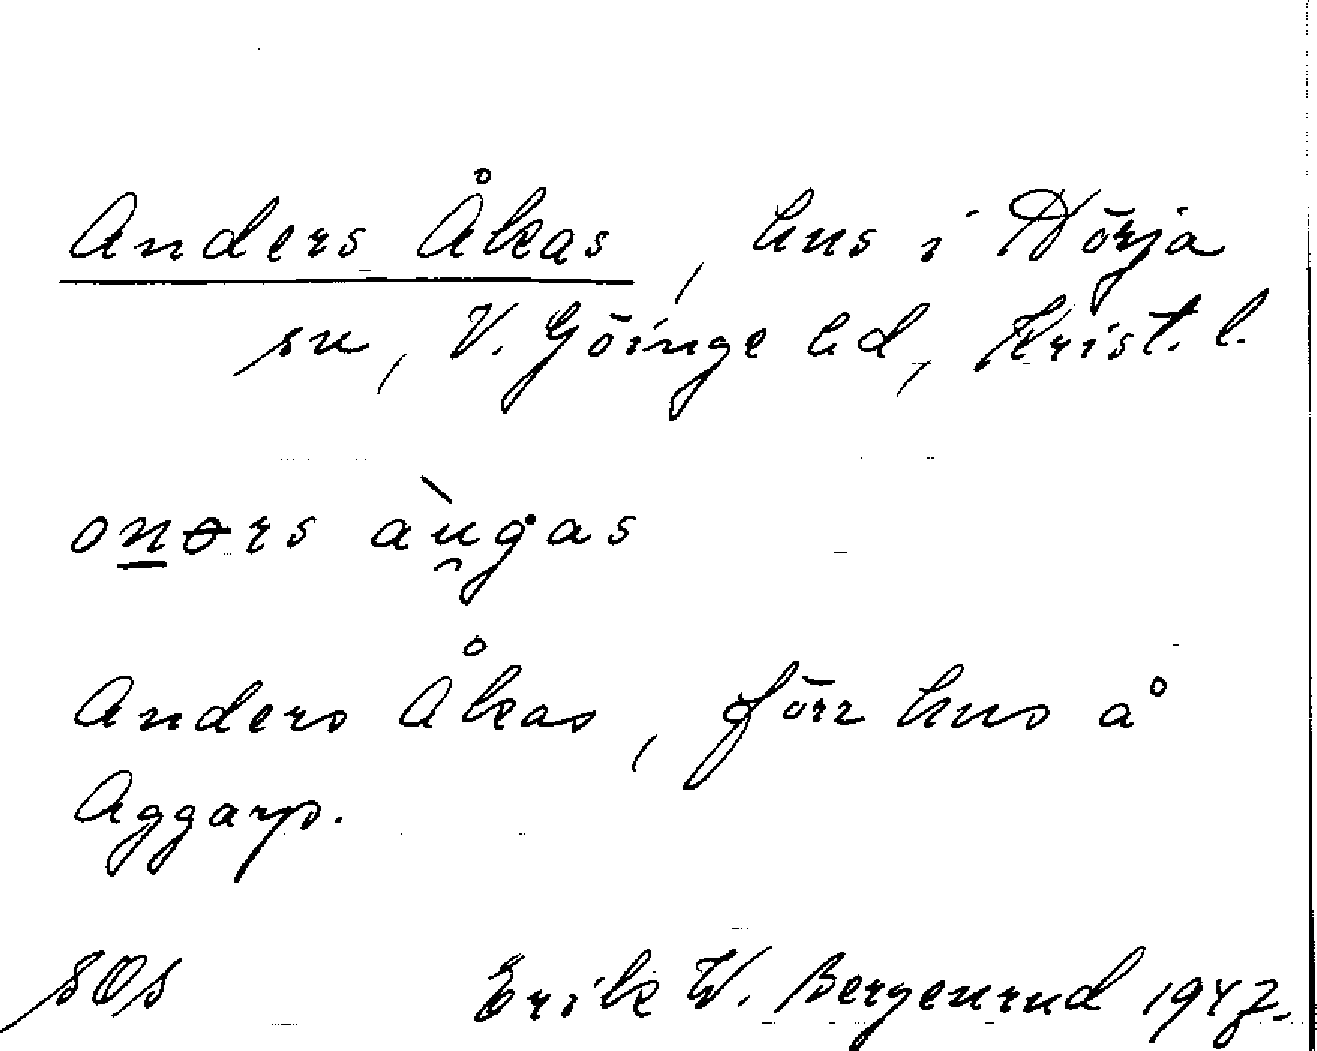 Anders Åkas, hus i Nörja
sn, V. Göinge hd, Krist. l.
onərs àu̯gas
Anders Åkas, förr hus å
Aggarp.
SOs Erik W. Bergenrud 1947.